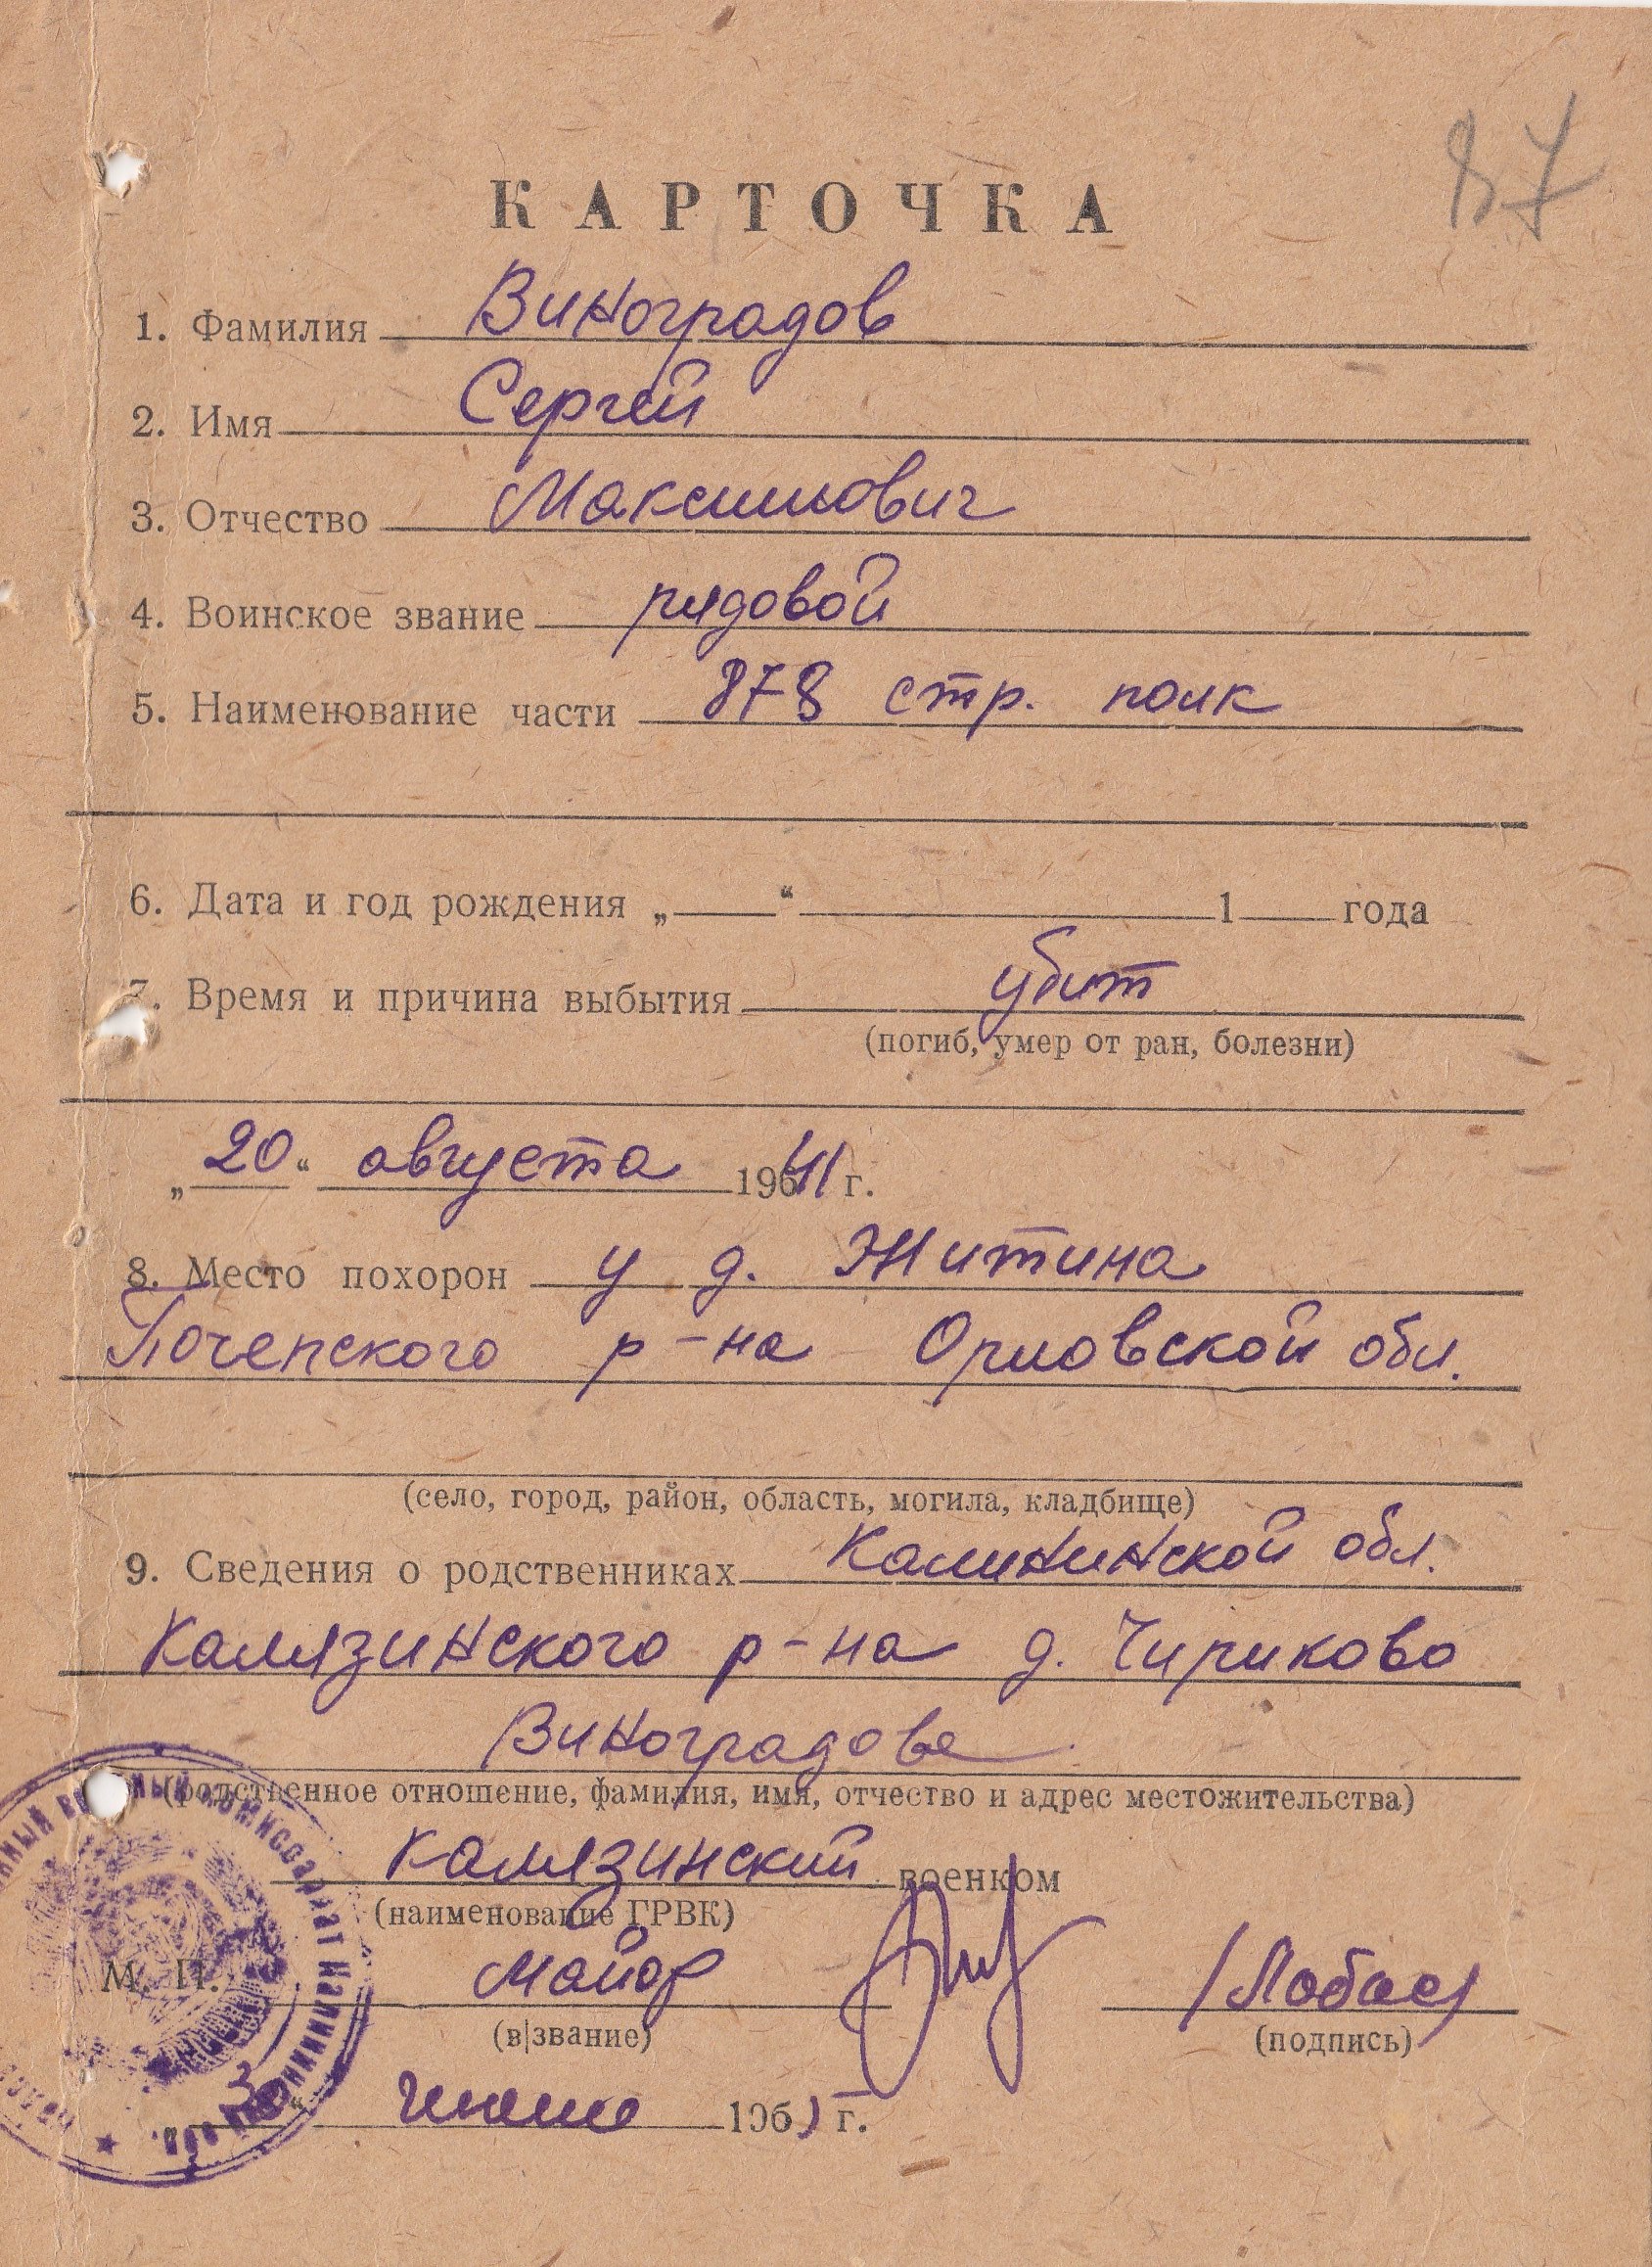 87
КАРТОЧКА
1. Фамилия Виноградов
2. Имя Сергей
3. Отчество Максимович
4. Воинское звание рядовой
5. Наименование части 878 стр. полк
6. Дата и год рождения „ “ 1 года
7. Время и причина выбытия убит
(погиб, умер от ран, болезни)
„20“ августа 1941 г.
8. Место похорон у д. Житина
Почепского р-на Орловской обл.
(село, город, район, область, могила, кладбище)
9. Сведения о родственниках Калининской обл.
Калязинского р-на д. Чириково
Виноградова
(родственное отношение, фамилия, имя, отчество и адрес местожительства)
Калязинский военком
(наименование ГРВК)
М. П. майор /Лобаев/
(в|звание) (подпись)
июня 196 г.
военный комиссариат Калининской обл.